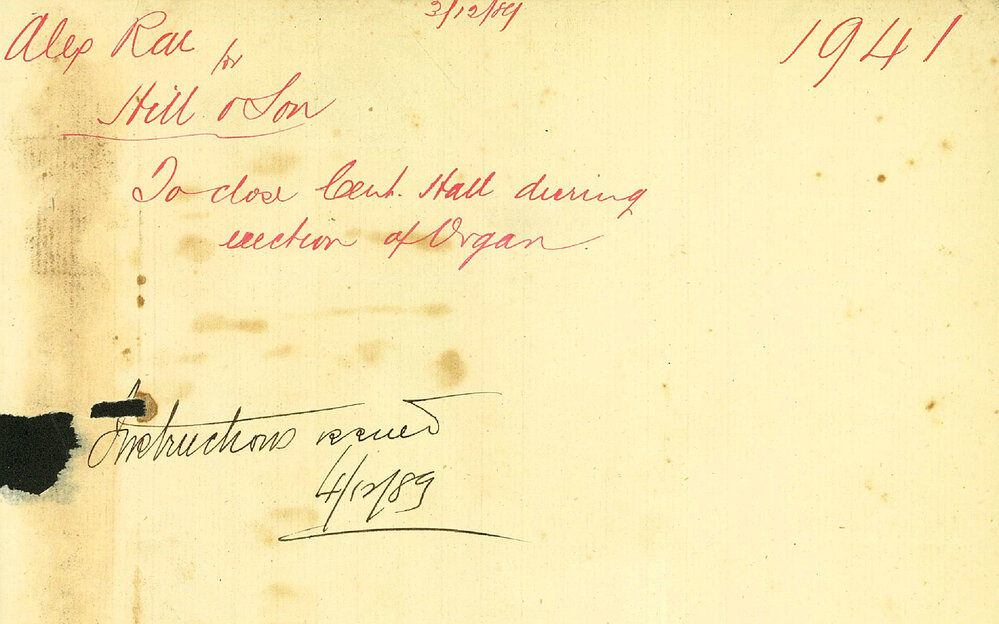 3/12/89
Alex Rae
1941
for
Hill & Son
To close Cent. Hall during
erection of Organ
Instructions issued
4/12/89